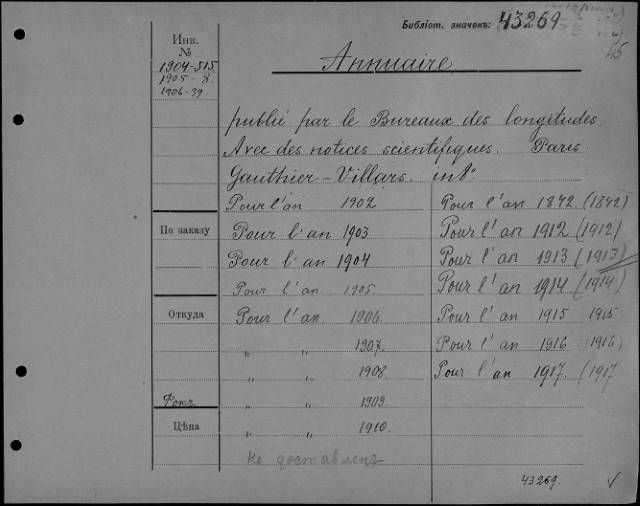 Библіот. значекъ: 43269
45
Инв.
№
1904-515
1905-8.
1906-39
Annuaire
publié par le Bureaux des longitudes.
Avec des notices scientifiques. Paris
Gauthier-Villars. in8°
Pour l'an 1902
Pour l'an 1903
Pour l'an 1904
Pour l'an 1905
Pour l'an 1906.
„ „ 1907.
„ „ 1908.
„ „ 1909.
„ „ 1910.
не доставленъ
Pour l'an 1842 (1842)
Pour l'an 1912 (1912)
Pour l'an 1913 (1913)
Pour l'an 1914 (1914)
Pour l'an 1915 1915
Pour l'an 1916 (1916)
Pour l'an 1917. (1917
По заказу
Откуда
Фокъ
Цѣна
43269.